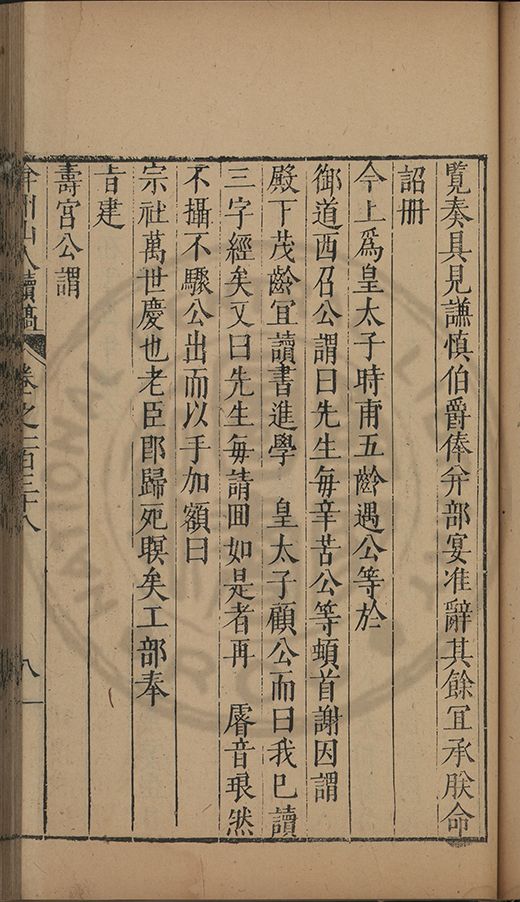 覽奏具見謙慎伯爵俸并部宴准辭其餘宜承朕命
詔冊
今上為皇太子時甫五齡遇公等於
御道西召公謂曰先生每辛苦公等頓首謝因謂
殿下茂齡宜讀書進學　皇太子顧公而曰我已讀
三字經矣又曰先生每請回如是者再　睿音琅然
不攝不驟公出而以手加額曰
宗社萬世慶也老臣即歸死瞑矣工部奉
旨建
壽宮公謂
弇州山人續稿
卷之一百三十八
八